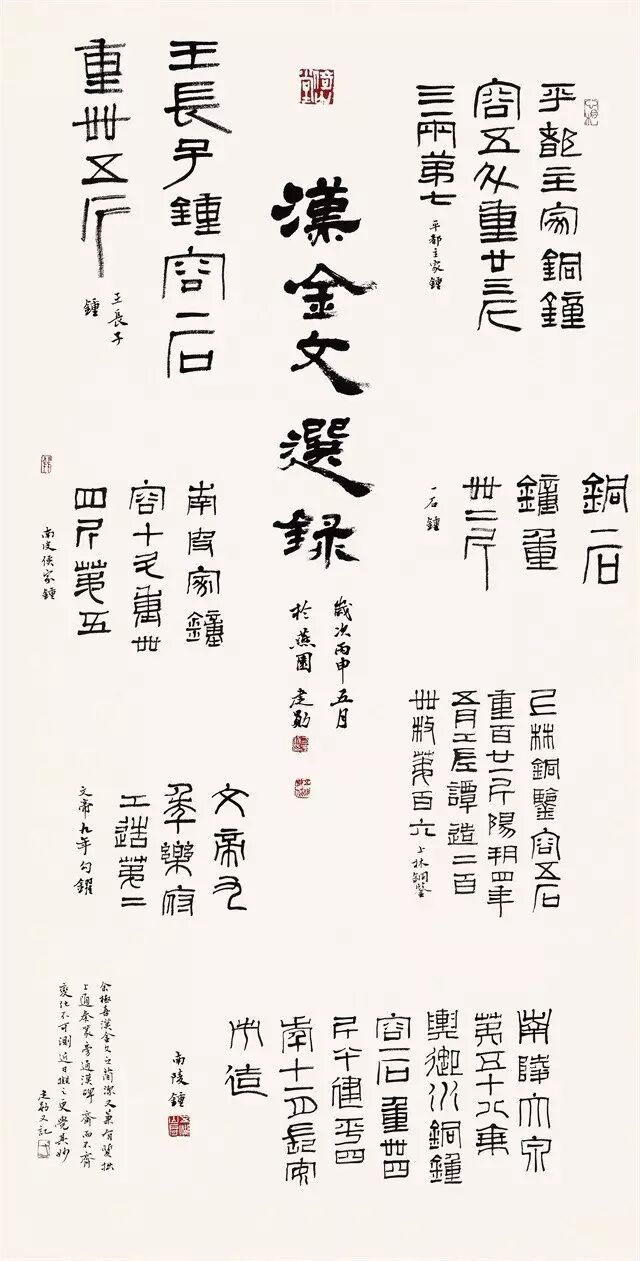 平都主家銅鐘
容五斗重廿三斤
三兩第七
平都主家鍾
漢金文選錄
歲次丙申五月
於燕園 建勛
王長子鍾容二石
重卅五斤
王長子
鍾
銅一石
鐘重
卅二斤
一石鍾
南皮家鐘
容十斗重卅
四斤第五
南皮侯家鍾
上林銅鑒容五石
重百廿一斤陽朔四年
五月工左譚造二百
卌枚第百六 上林銅鑒
文帝九
年樂府
工造第二
文帝九年勾鑃
南陵大泉
第五十八乘
輿御水銅鐘
容一石重卅四
斤半建平四
年十一月長安
市造
南陵鍾
余極喜漢金文之簡潔又兼有質拙
上通秦篆旁通漢碑齊而不齊
變化不可測近日撫之更覺其妙
建勛又記